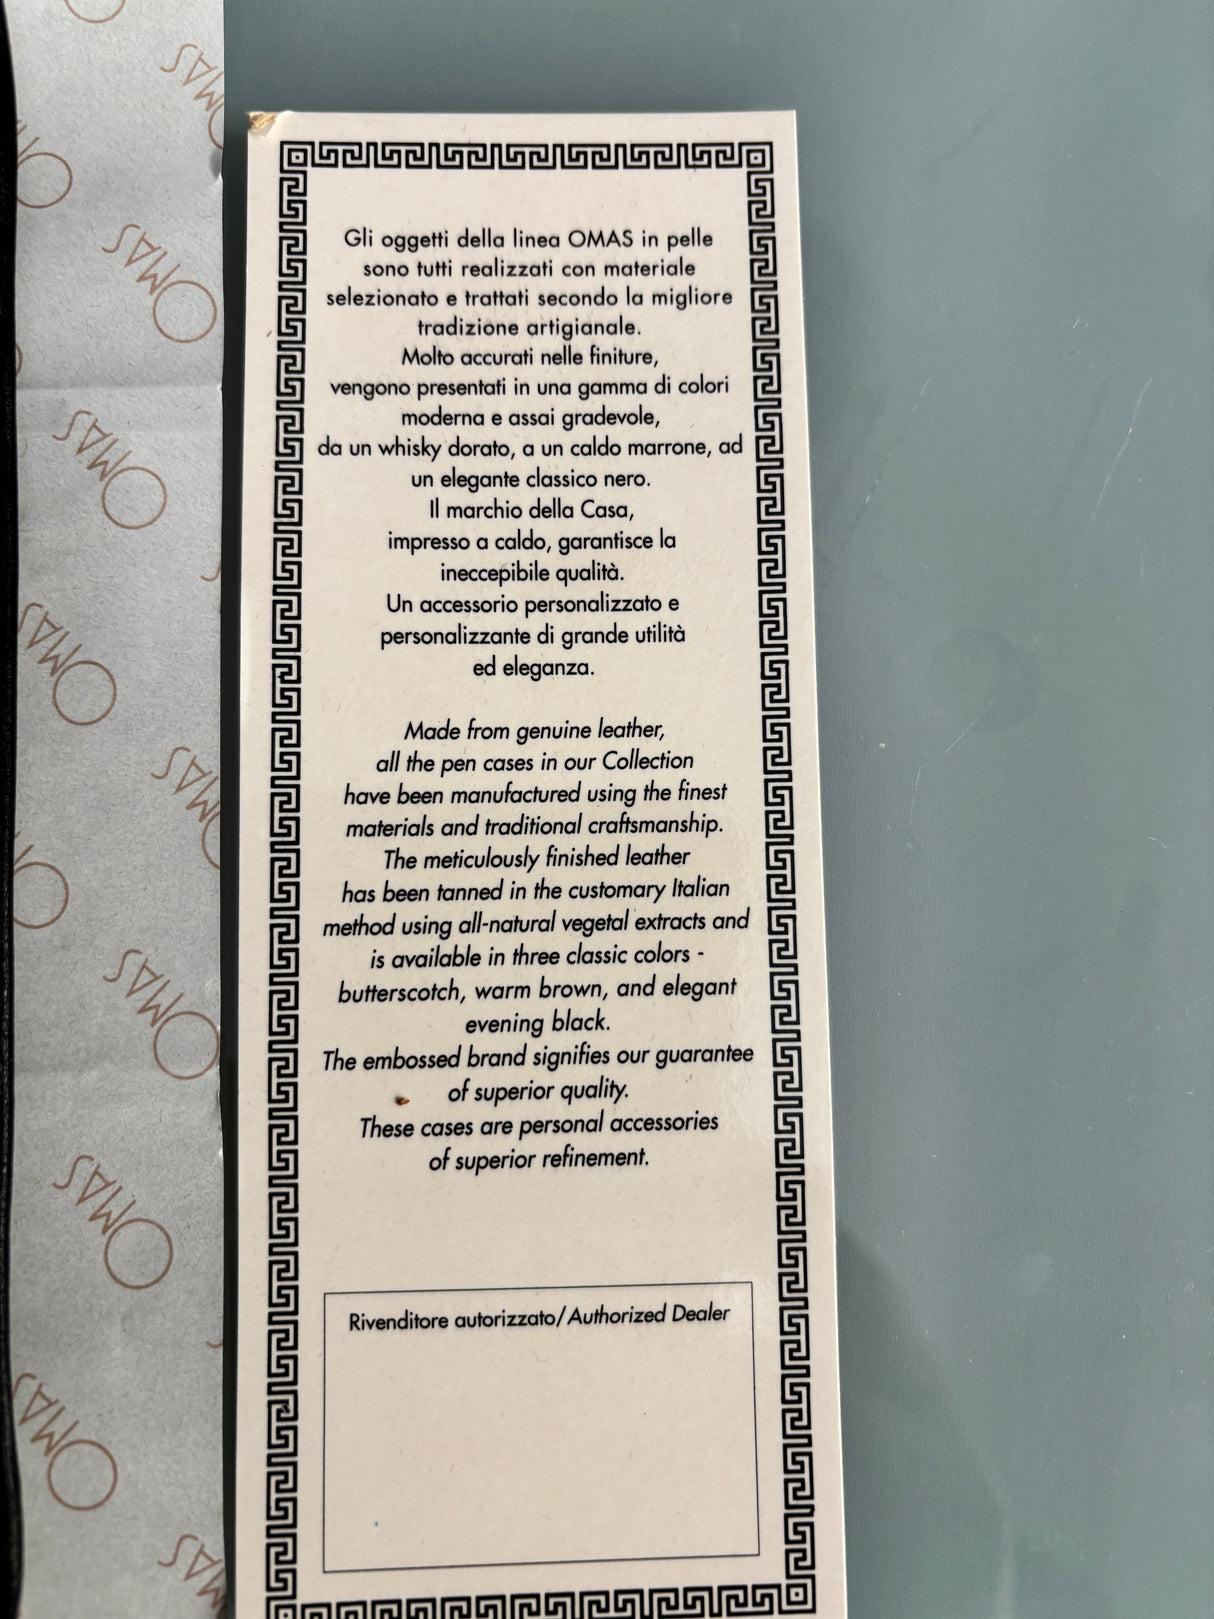 OMAS
OMAS
OMAS
OMAS
OMAS
OMAS
OMAS
OMAS
Gli oggetti della linea OMAS in pelle
sono tutti realizzati con materiale
selezionato e trattati secondo la migliore
tradizione artigianale.
Molto accurati nelle finiture,
vengono presentati in una gamma di colori
moderna e assai gradevole,
da un whisky dorato, a un caldo marrone, ad
un elegante classico nero.
Il marchio della Casa,
impresso a caldo, garantisce la
ineccepibile qualità.
Un accessorio personalizzato e
personalizzante di grande utilità
ed eleganza.
Made from genuine leather,
all the pen cases in our Collection
have been manufactured using the finest
materials and traditional craftsmanship.
The meticulously finished leather
has been tanned in the customary Italian
method using all-natural vegetal extracts and
is available in three classic colors -
butterscotch, warm brown, and elegant
evening black.
The embossed brand signifies our guarantee
of superior quality.
These cases are personal accessories
of superior refinement.
Rivenditore autorizzato/Authorized Dealer